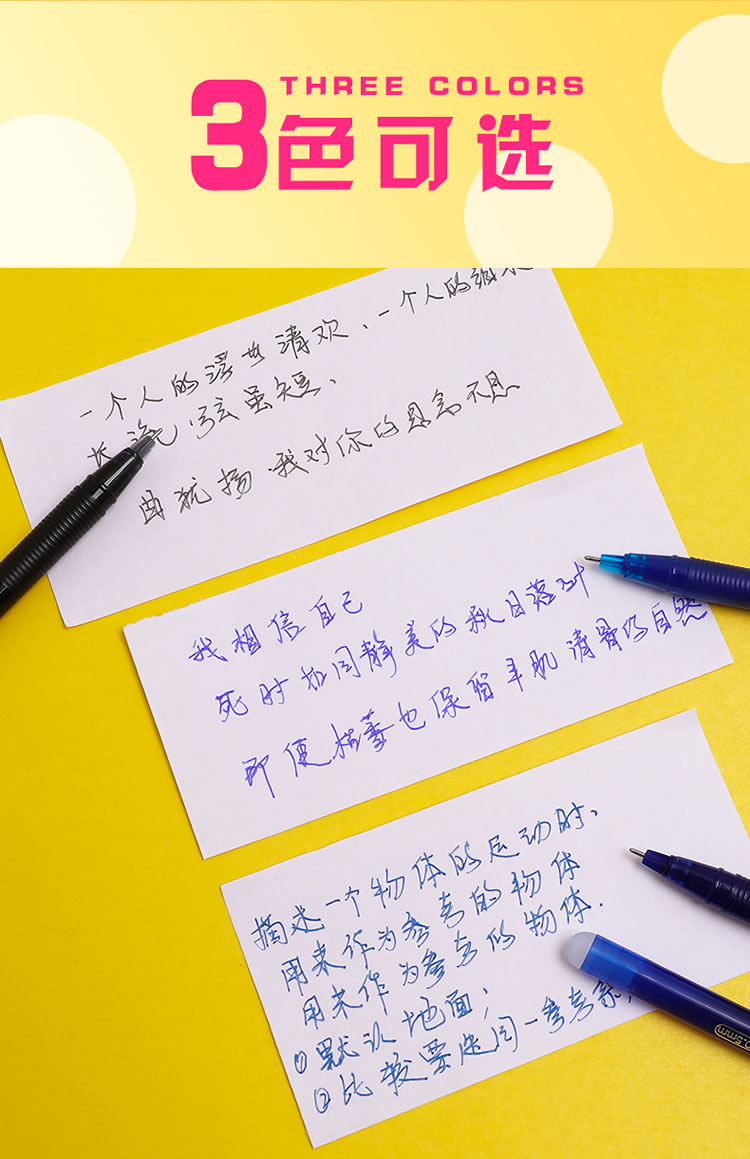 THREE COLORS
3色可选
一个人的浮世清欢、一个人的
弦虽短、
曲犹扬、我对你的思念不息
我相信自己
死时如同静美的秋日落叶
即便枯萎也保留丰肌清骨的自然
描述一个物体的运动时、
用来作为参考的物体
用来作为参考的物体.
①默认地面;
②比较要选同一参考系
0.5mm